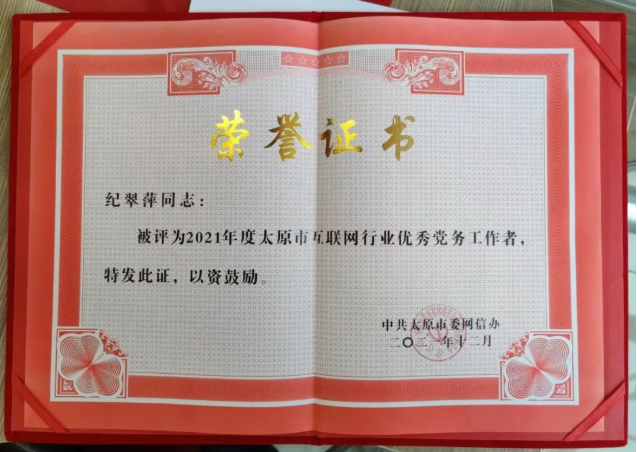 荣誉证书
纪翠萍同志：
被评为2021年度太原市互联网行业优秀党务工作者，
特发此证，以资鼓励。
中共太原市委网信办
二〇二一年十二月